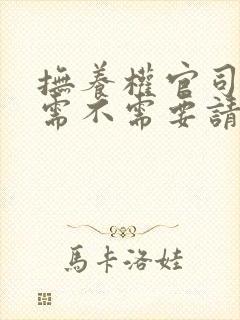 撫養權官司
需不需要請
馬卡洛娃